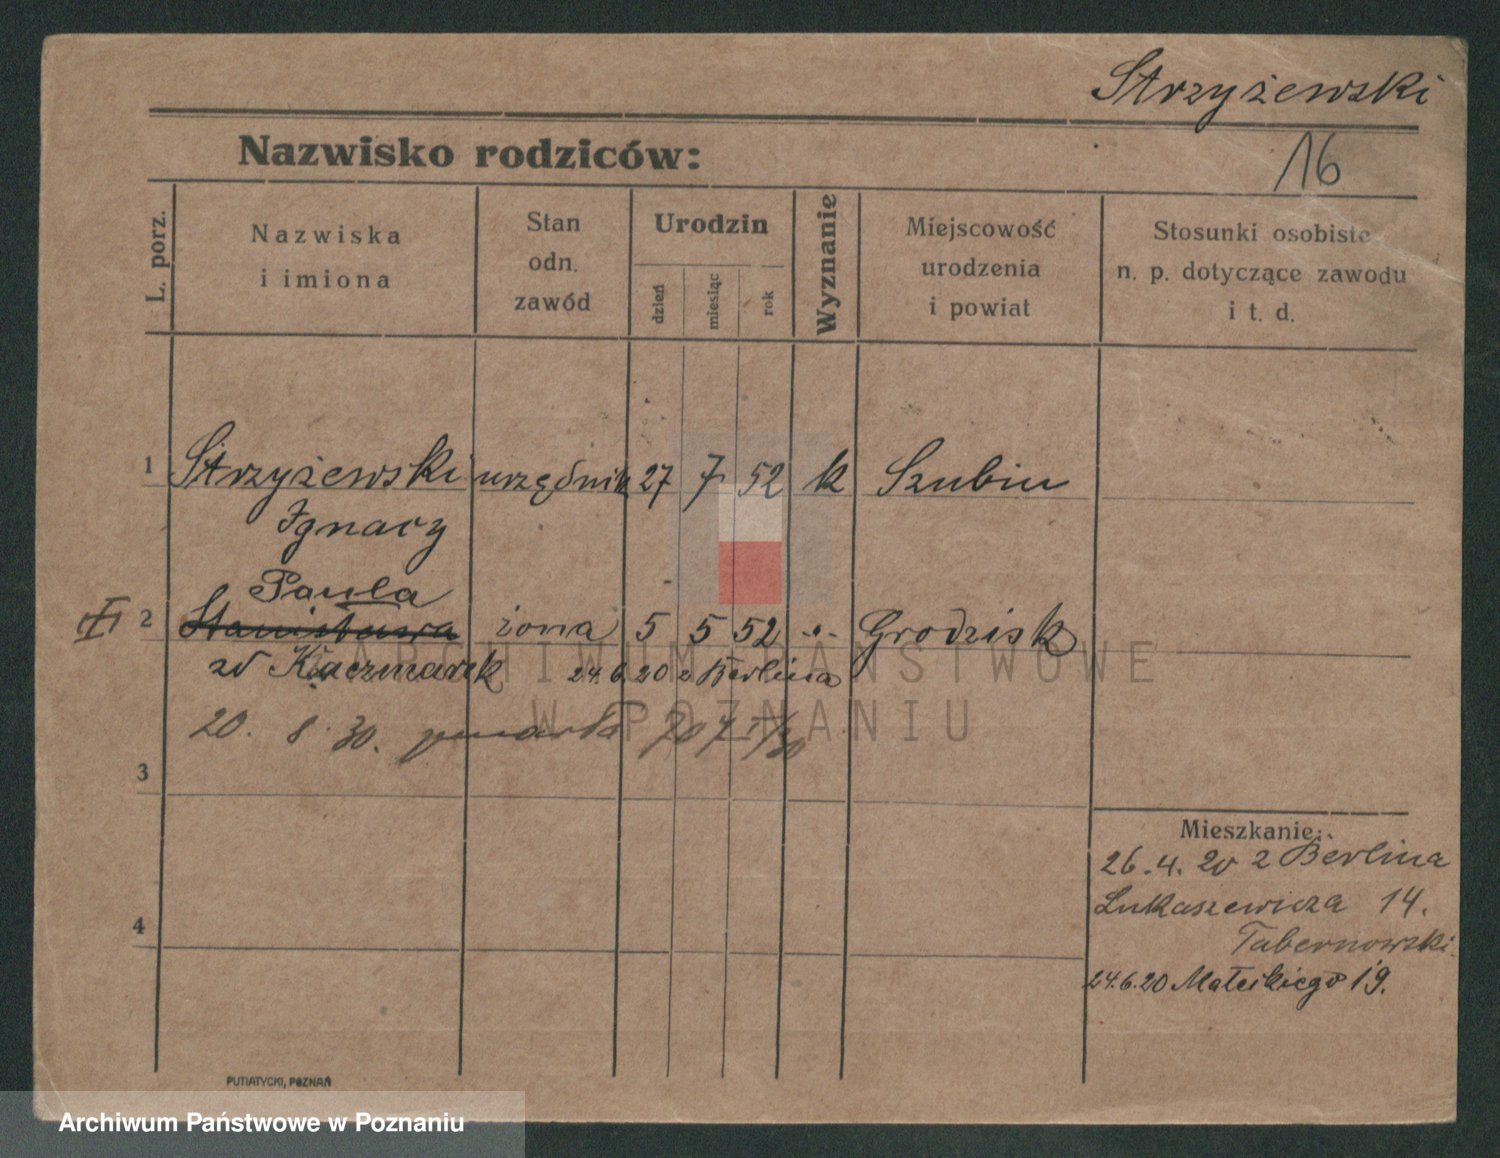 Strzyżewski
Nazwisko rodziców:
16
L. porz.
Nazwiska
i imiona
Stan
odn.
zawód
Urodzin
dzień
miesiąc
rok
Wyznanie
Miejscowość
urodzenia
i powiat
Stosunki osobiste
n. p. dotyczące zawodu
i t. d.
1 Strzyżewski urzędnik 27 7 52 k Szubin
Ignacy
Paula
2 Stanisława żona 5 5 52 -"- Grodzisk
zd Kaczmarek 24.6.20 z Berlina
ARCHIWUM PAŃSTWOWE
W POZNANIU
20. 8. 30. zmarła 707
3
Mieszkanie:
26.4.20 z Berlina
Łukaszewicza 14.
Tabernowski
4
24.6.20 Matejkiego 19.
PUTIATYCKI, POZNAŃ
Archiwum Państwowe w Poznaniu